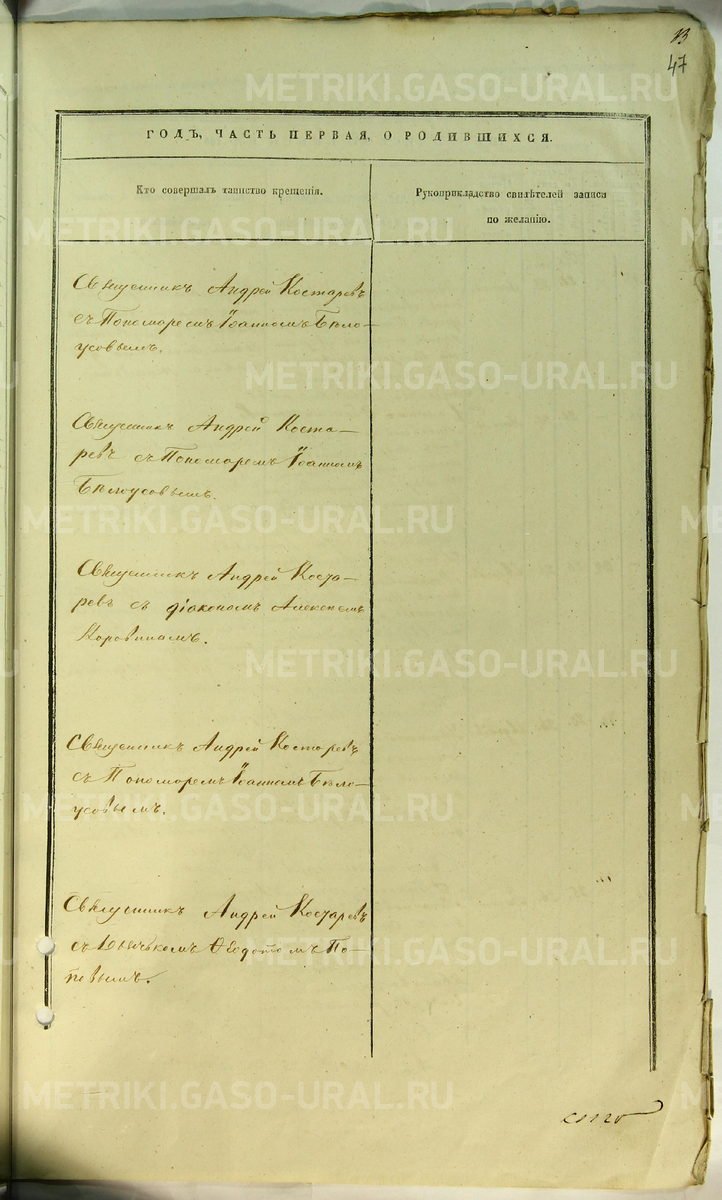 13
47
ГОДЪ, ЧАСТЬ ПЕРВАЯ, О РОДИВШИХСЯ.
Кто совершалъ таинство крещенія.
Рукоприкладство свидѣтелей записа
по желанію.
Священникъ Андрей Костаревъ
съ Пономаремъ Іоанномъ Бѣло-
усовымъ.
Священникъ Андрей Коста-
ревъ съ Пономаремъ Іоанномъ
Бѣлоусовымъ.
Священникъ Андрей Коста-
ревъ съ діакономъ Алексѣемъ
Коровинымъ.
Священникъ Андрей Костаревъ
съ Пономаремъ Іоанномъ Бѣло-
усовымъ.
Священникъ Андрей Костаревъ
съ Дьячкомъ Ѳеодотомъ По-
повымъ.
METRIKI.GASO-URAL.RU